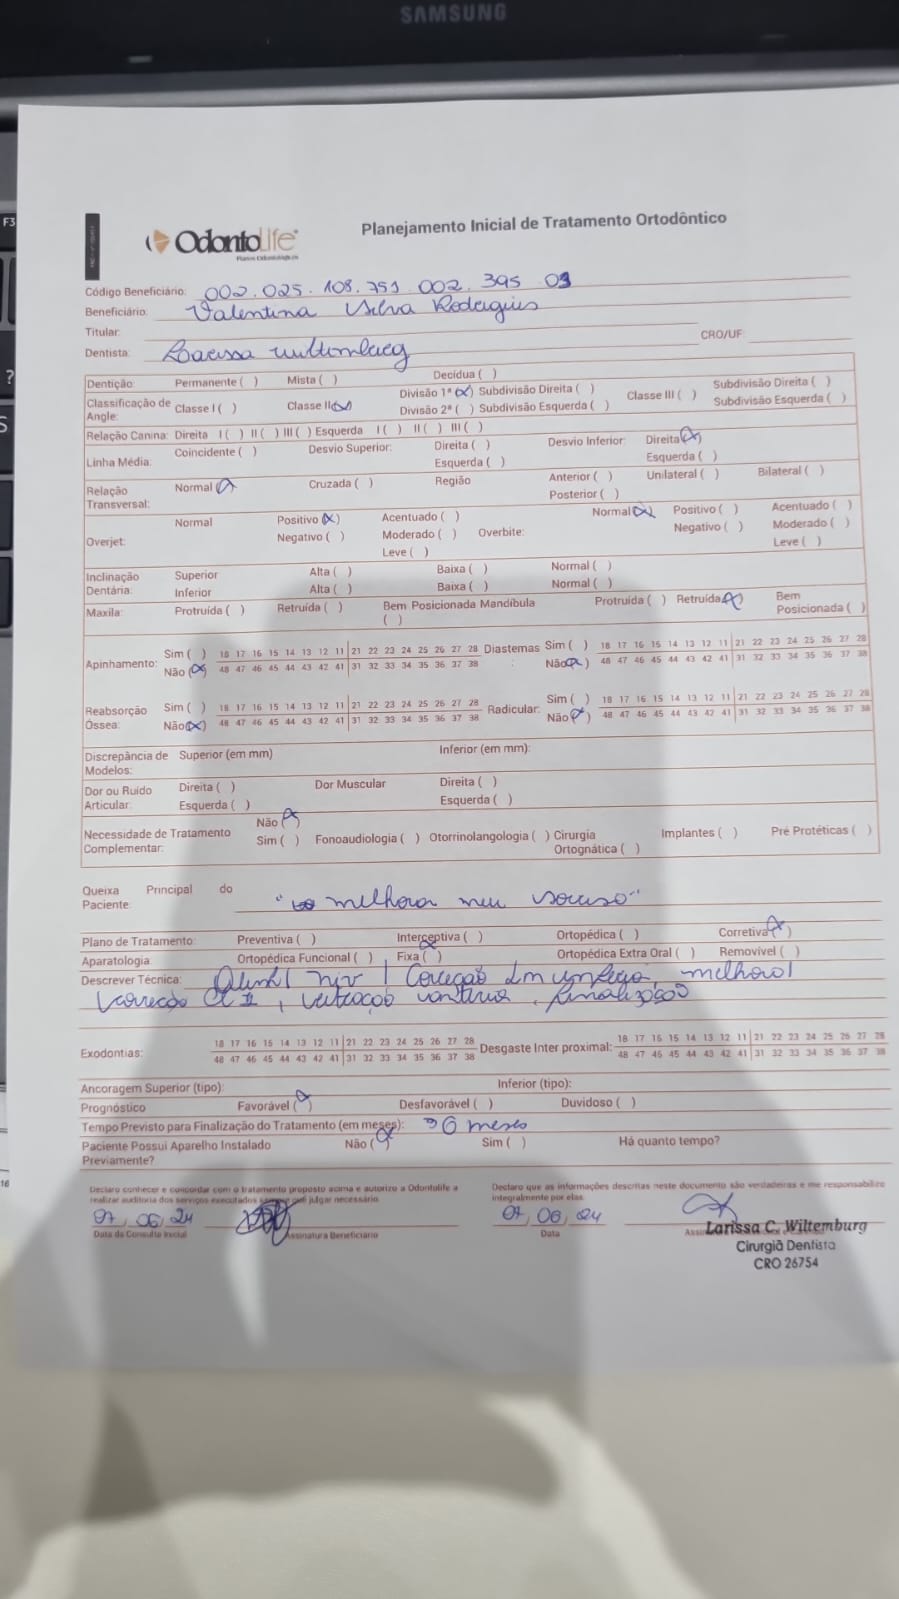 SAMSUNG
F3
?
S
16
OdontoLife
Planos Odontológicos
Planejamento Inicial de Tratamento Ortodôntico
Código Beneficiário: 002.025.108.751.002.395 03
Beneficiário: Valentina Silva Rodrigues
Titular:
Dentista: Larissa Wiltemburg CRO/UF:
Dentição: Permanente ( ) Mista ( ) Decídua ( )
Classificação de Angle: Classe I ( ) Classe II (x) Divisão 1ª (x) Subdivisão Direita ( ) Classe III ( ) Subdivisão Direita ( )
Divisão 2ª ( ) Subdivisão Esquerda ( ) Subdivisão Esquerda ( )
Relação Canina: Direita I ( ) II ( ) III ( ) Esquerda I ( ) II ( ) III ( )
Linha Média: Coincidente ( ) Desvio Superior: Direita ( ) Desvio Inferior: Direita (x)
Esquerda ( ) Esquerda ( )
Relação Transversal: Normal (x) Cruzada ( ) Região Anterior ( ) Unilateral ( ) Bilateral ( )
Posterior ( )
Overjet: Normal Positivo (x) Acentuado ( ) Overbite: Normal (x) Positivo ( ) Acentuado ( )
Negativo ( ) Moderado ( ) Negativo ( ) Moderado ( )
Leve ( ) Leve ( )
Inclinação Dentária: Superior Alta ( ) Baixa ( ) Normal ( )
Inferior Alta ( ) Baixa ( ) Normal ( )
Maxila: Protruída ( ) Retruída ( ) Bem Posicionada ( ) Mandíbula Protruída ( ) Retruída (x) Bem Posicionada ( )
Apinhamento: Sim ( ) 18 17 16 15 14 13 12 11 21 22 23 24 25 26 27 28 Diastemas: Sim ( ) 18 17 16 15 14 13 12 11 21 22 23 24 25 26 27 28
Não (x) 48 47 46 45 44 43 42 41 31 32 33 34 35 36 37 38 Não (x) 48 47 46 45 44 43 42 41 31 32 33 34 35 36 37 38
Reabsorção Óssea: Sim ( ) 18 17 16 15 14 13 12 11 21 22 23 24 25 26 27 28 Radicular: Sim ( ) 18 17 16 15 14 13 12 11 21 22 23 24 25 26 27 28
Não (x) 48 47 46 45 44 43 42 41 31 32 33 34 35 36 37 38 Não (x) 48 47 46 45 44 43 42 41 31 32 33 34 35 36 37 38
Discrepância de Modelos: Superior (em mm) Inferior (em mm):
Dor ou Ruido Articular: Direita ( ) Dor Muscular Direita ( )
Esquerda ( ) Esquerda ( )
Necessidade de Tratamento Complementar: Não (x)
Sim ( ) Fonoaudiologia ( ) Otorrinolangologia ( ) Cirurgia Ortognática ( ) Implantes ( ) Pré Protéticas ( )
Queixa Principal do Paciente: "melhora meu sorriso"
Plano de Tratamento: Preventiva ( ) Interceptiva ( ) Ortopédica ( ) Corretiva (x)
Aparatologia: Ortopédica Funcional ( ) Fixa (x) Ortopédica Extra Oral ( ) Removível ( )
Descrever Técnica: Alinh / niv / Correção
correção Cl II, finalização
Exodontias: 18 17 16 15 14 13 12 11 21 22 23 24 25 26 27 28 Desgaste Inter proximal: 18 17 16 15 14 13 12 11 21 22 23 24 25 26 27 28
48 47 46 45 44 43 42 41 31 32 33 34 35 36 37 38 48 47 46 45 44 43 42 41 31 32 33 34 35 36 37 38
Ancoragem Superior (tipo): Inferior (tipo):
Prognóstico Favorável (x) Desfavorável ( ) Duvidoso ( )
Tempo Previsto para Finalização do Tratamento (em meses): 36 meses
Paciente Possui Aparelho Instalado Previamente? Não (x) Sim ( ) Há quanto tempo?
Declaro conhecer e concordar com o tratamento proposto acima e autorizo a Odontolife a realizar auditoria dos serviços executados sempre que julgar necessário.
Declaro que as informações descritas neste documento são verdadeiras e me responsabilizo integralmente por elas.
07, 06, 24 07, 06, 24
Data da Consulta Inicial Assinatura Beneficiário Data
Larissa C. Wiltemburg
Cirurgiã Dentista
CRO 26754